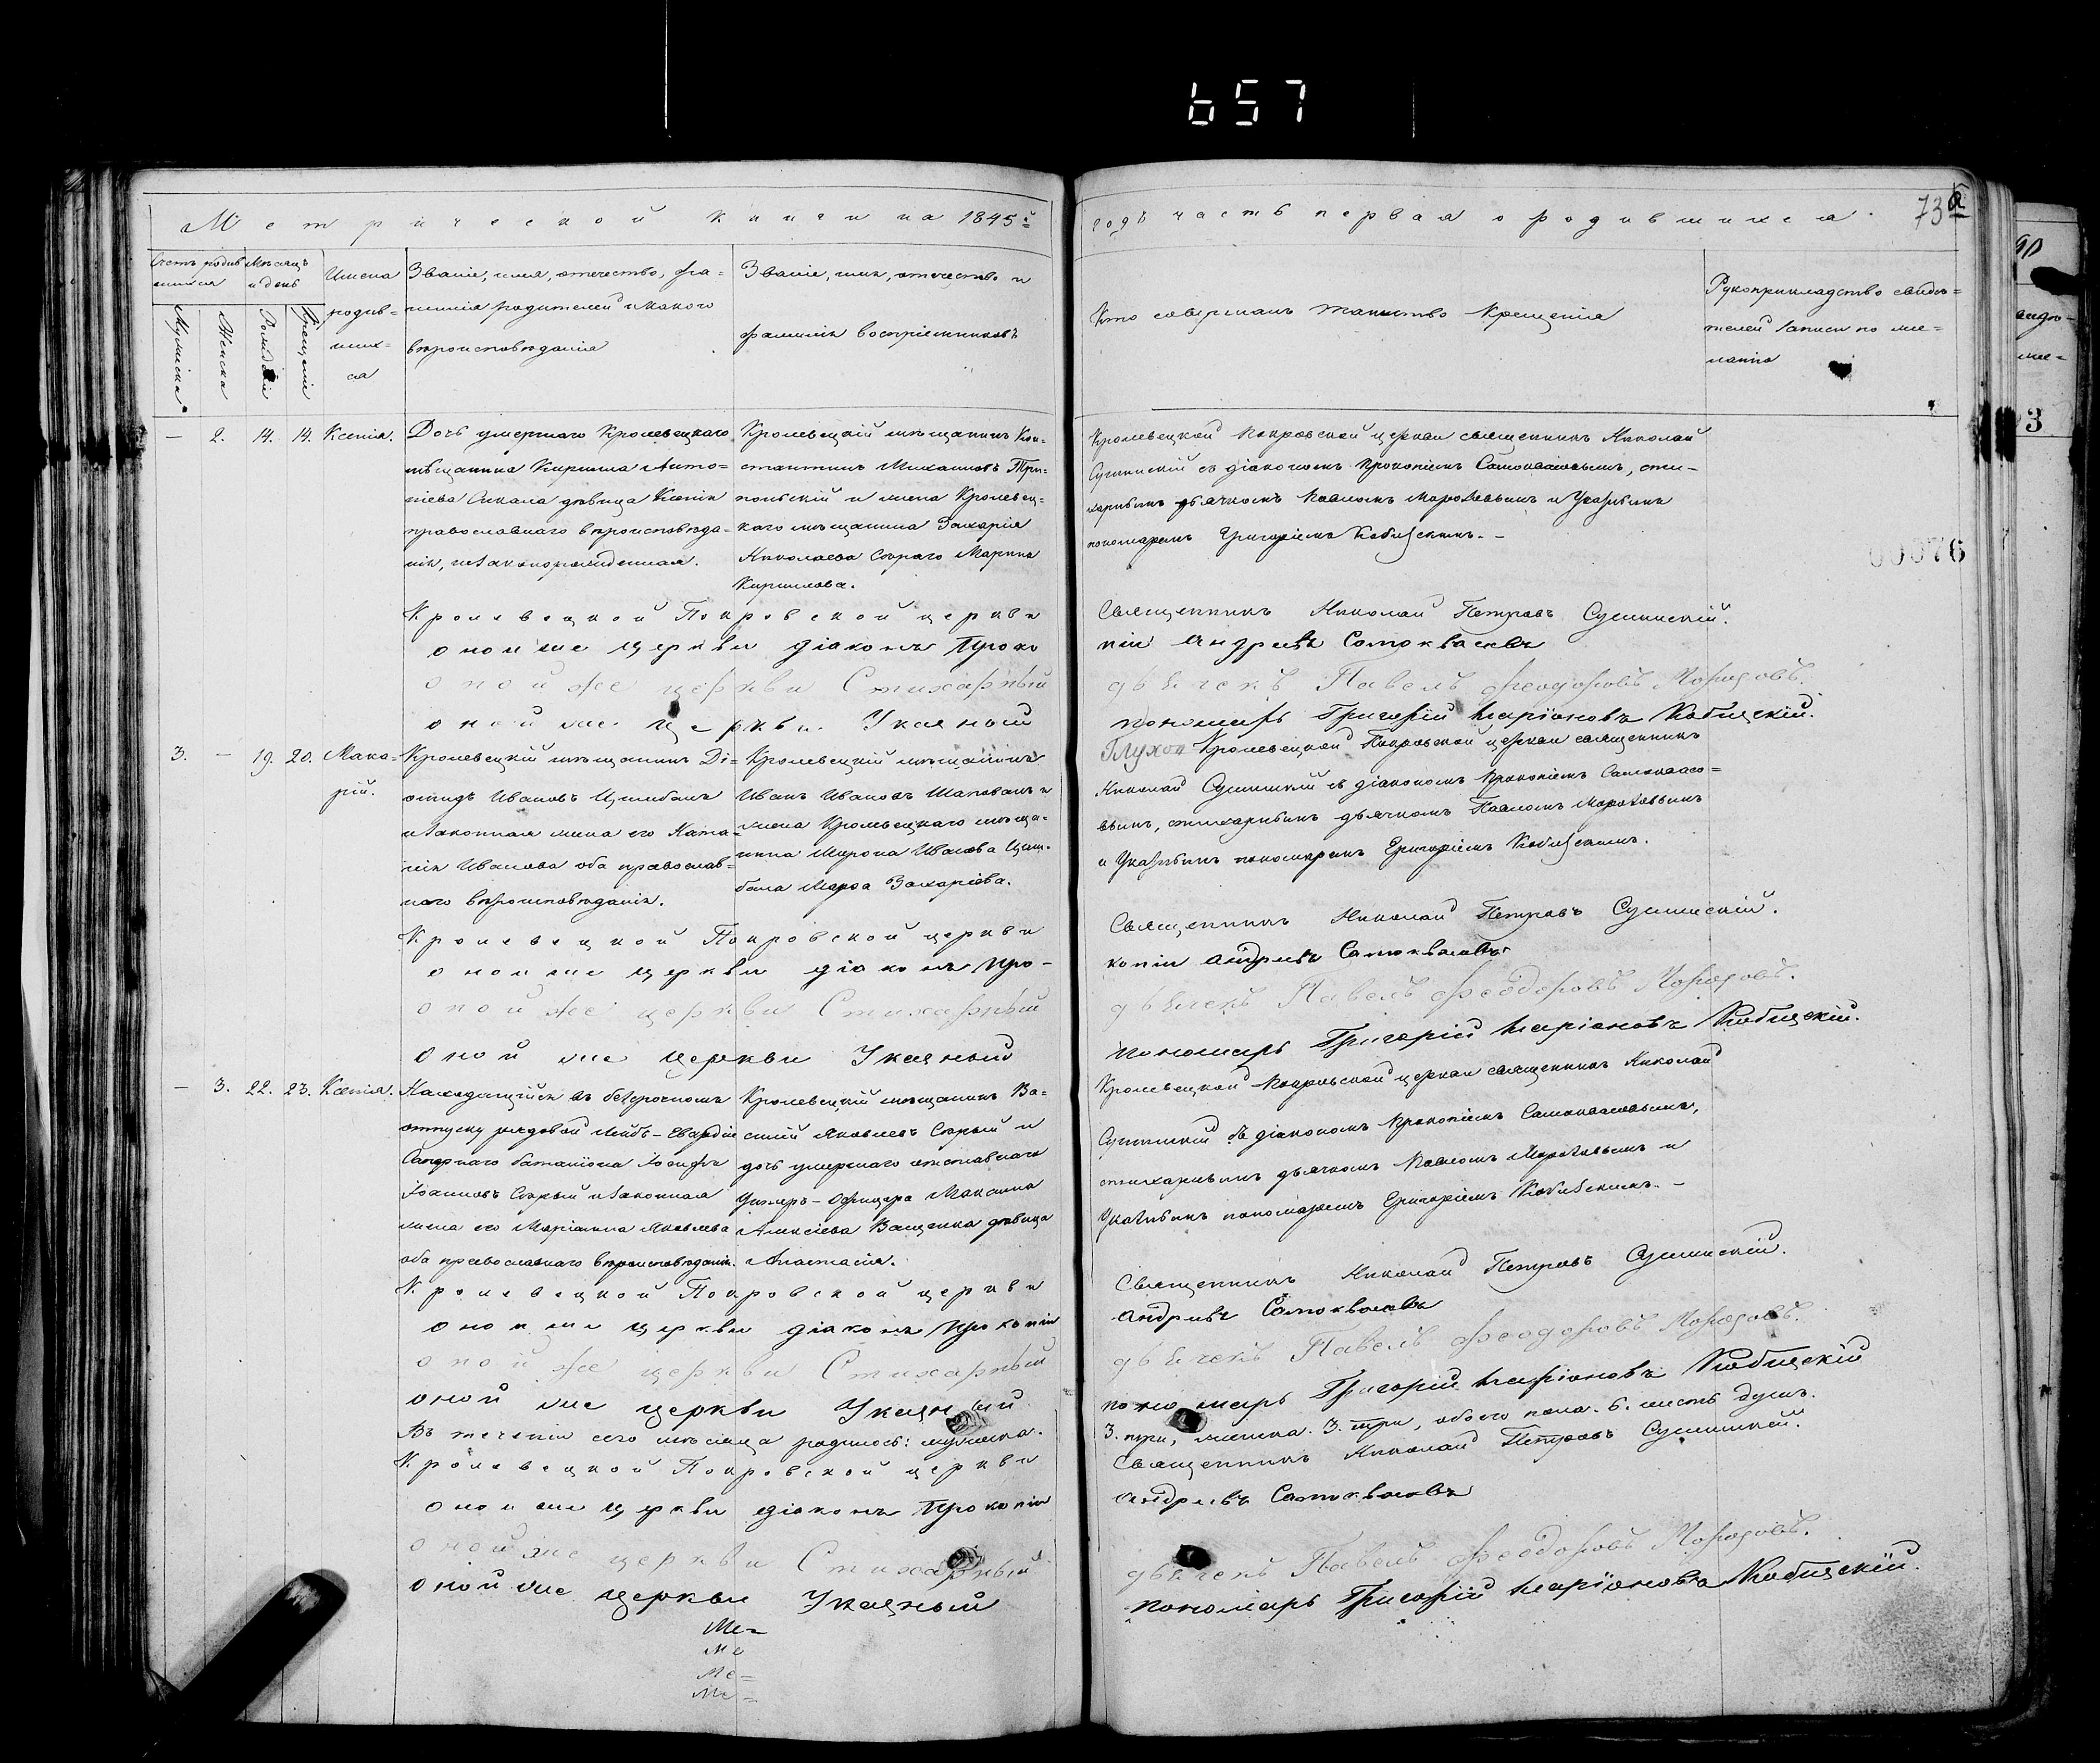 657
Метрической книги на 1845й
годъ часть первая о родившихся.
73
Счетъ родив
шихся
Мужеска
Женска
Мѣсяцъ
и день
Рожденія
Крещенія
Имена
родив=
ших=
ся
Званіе, имя, отечество, фа=
милія родителей и какого
вѣроисповѣданія
Званіе, имя, отечество и
фамилія воспріемниковъ
Кто совершалъ таинство крещенія
Рукоприкладство свидѣ=
телей записи по же=
ланію
— 2. 14. 14. Ксенія.
Дочь умершаго Кролевецкаго
мѣщанина Кирилла Анто=
ніева дѣвица Ксенія
православнаго вѣроисповѣда=
нія, незаконорожденная.
Кролевецкій мѣщанинъ Кон=
стантинъ Михайловъ Три=
польскій и жена Кролевец=
каго мѣщанина Захарія
Николаева Сѣраго Марина
Кирилова.
Кролевецкой Покровской церкви священникъ Николай
Сушинскій съ діакономъ Прокопіемъ Самоквасовымъ, сти=
харнымъ дьячкомъ Павломъ Морозовымъ и Указнымъ
пономаремъ Григоріемъ Кобизскимъ. —
00076
Кролевецкой Покровской церкви Священникъ Николай Петровъ Сушинскій.
оной же церкви діаконъ Прокопій Андреевъ Самоквасовъ
оной же церкви Стихарный дьячекъ Павелъ Феодоровъ Морозовъ.
оной же церкви Указный пономарь Григорій Маріоновъ Кобизскій.
3. — 19. 20. Мака=
рій.
Кролевецкій мѣщанинъ Ді=
омидъ Ивановъ Цимбалъ
и законная жена его Ната=
лія Иванова оба православ=
наго вѣроисповѣданія.
Кролевецкій мѣщанинъ
Иванъ Ивановъ Шаповалъ и
жена Кролевецкаго мѣща=
нина Мирона Иванова Цим=
бала Марфа Захаріева.
Кролевецкой Покровской церкви священникъ
Николай Сушинскій съ діакономъ Прокопіемъ Самоквасо=
вымъ, стихарнымъ дьячкомъ Павломъ Морозовымъ
и Указнымъ пономаремъ Григоріемъ Кобизскимъ.
Кролевецкой Покровской церкви Священникъ Николай Петровъ Сушинскій.
оной же церкви діаконъ Прокопій Андреевъ Самоквасовъ
оной же церкви Стихарный дьячекъ Павелъ Феодоровъ Морозовъ.
оной же церкви Указный пономарь Григорій Маріоновъ Кобизскій.
— 3. 22. 23. Ксенія.
Находящійся въ безсрочномъ
отпуску рядовой Лейбъ-Гвардіи
Сапернаго баталіона Іосифъ
Іоанновъ Сѣрый и законная
жена его Маріанна Яковлева
оба православнаго вѣроисповѣданія.
Кролевецкій мѣщанинъ Ва=
силій Яковлевъ Сѣрый и
дочь умершаго отставнаго
Унтеръ-Офицера Максима
Алексѣева Ващенка дѣвица
Анастасія.
Кролевецкой Покровской церкви священникъ Николай
Сушинскій съ діакономъ Прокопіемъ Самоквасовымъ,
стихарнымъ дьячкомъ Павломъ Морозовымъ и
Указнымъ пономаремъ Григоріемъ Кобизскимъ. —
Кролевецкой Покровской церкви Священникъ Николай Петровъ Сушинскій.
оной же церкви діаконъ Прокопій Андреевъ Самоквасовъ
оной же церкви Стихарный дьячекъ Павелъ Феодоровъ Морозовъ.
оной же церкви Указный пономарь Григорій Маріоновъ Кобизскій
Въ теченіи сего мѣсяца родилось: мужеска. 3. три, женска. 3. три, обоего пола. 6. шесть душъ.
Кролевецкой Покровской церкви Священникъ Николай Петровъ Сушинскій.
оной же церкви діаконъ Прокопій Андреевъ Самоквасовъ
оной же церкви Стихарный дьячекъ Павелъ Феодоровъ Морозовъ.
оной же церкви Указный пономарь Григорій Маріоновъ Кобизскій.
Ме=
Ме
Ме=
Ме=